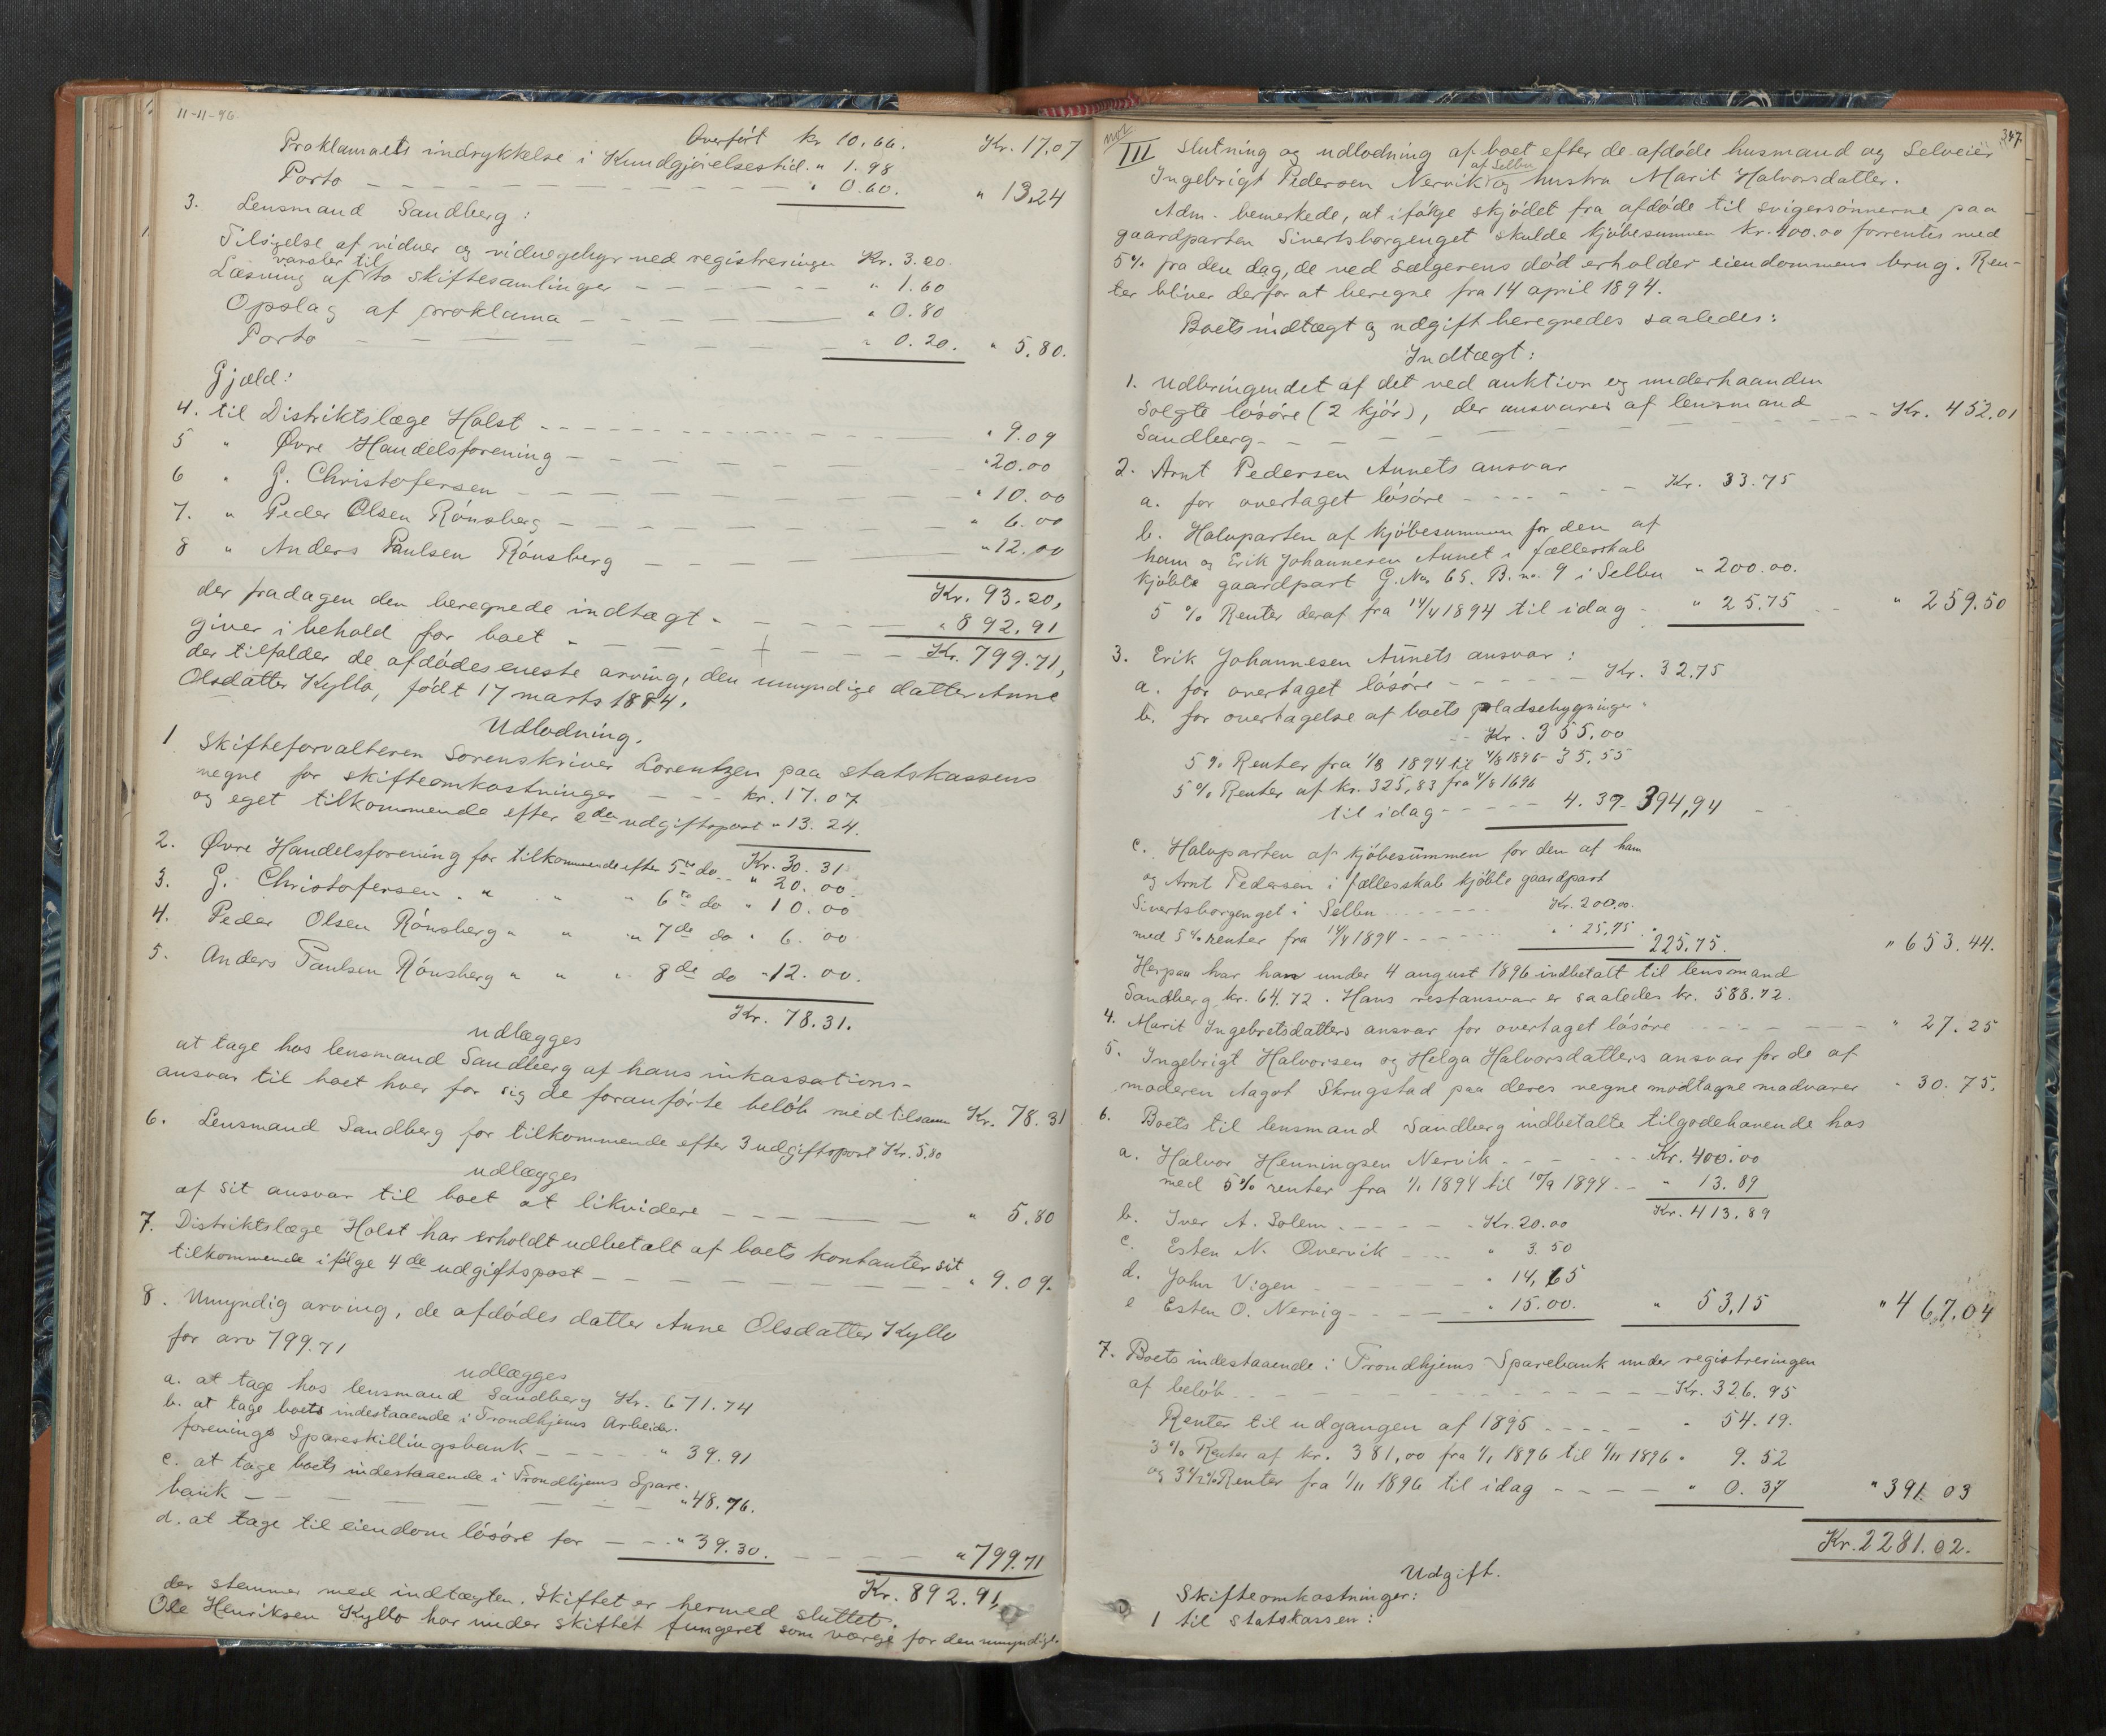 11-11-96
Overført kr 10.66. Kr. 17.07
Proklamaets indrykkelse i Kundgjørelsestid. " 1.98
Porto " 0.60. " 13.24
3. Lensmand Sandberg:
Tilsigelse af vidner og vidnegebyr ved registreringen Kr. 3.20
varsler til
Læsning af to skiftesamlinger " 1.60
Opslag af proklama " 0.80
Porto " 0.20. " 5.80.
Gjæld:
4. til Distriktslæge Holst " 9.09
5 " Øvre Handelsforening " 20.00
6 " G. Christofersen " 10.00
7. " Peder Olsen Rønsberg " 6.00
8 " Anders Paulsen Rønsberg " 12.00
Kr. 93.20,
der fradagen den beregnede indtægt " 892.91
giver i behold for boet Kr. 799.71,
der tilfalder de afdødes eneste arving, den umyndige datter Anne
Olsdatter Kyllo, født 17 marts 1884.
Udlodning.
1 Skifteforvalteren Sorenskriver Lorentzen paa statskassens
vegne for skifteomkostninger kr. 17.07
og eget tilkommende efter 2den udgiftspost " 13.24.
Kr. 30.31
2. Øvre Handelsforening for tilkommende efter 5te do " 20.00
3. G. Christofersen " " " 6te do " 10.00
4. Peder Olsen Rønsberg " " " 7de do " 6.00
5. Anders Paulsen Rønsberg " " " 8de do " 12.00.
Kr. 78.31.
udlægges
at tage hos lensmand Sandberg af hans inkassations-
ansvar til boet hver for sig de foranførte beløb med tilsam Kr. 78.31
6. Lensmand Sandberg for tilkommende efter 3 udgiftspost Kr. 5.80
udlægges
af sit ansvar til boet at likvidere " 5.80
7. Distriktslæge Holst har erholdt udbetalt af boets kontanter sit
tilkommende ifølge 4de udgiftspost " 9.09.
8. Umyndig arving, de afdødes datter Anne Olsdatter Kyllo
for arv 799.71
udlægges
a. at tage hos lensmand Sandberg Kr. 671.74
b. at tage boets indestaaende i Trondhjems Arbeider-
forenings Spareskillingsbank " 39.91
c. at tage boets indestaaende i Trondhjems Spare-
bank " 48.76.
d. at tage til eiendom løsøre for " 39.30. " 799.71
Kr. 892.91,
der stemmer med indtægten. Skiftet er hermed sluttet.
Ole Henriksen Kyllo har under skiftet fungeret som værge for den umyndige.
347
III Slutning og udlodning af boet efter de afdøde husmand og Selveier
af Selbu
Ingebrigt Pedersen Nervik og hustru Marit Halvorsdatter.
Adm. bemerkede, at ifølge skjødet fra afdøde til svigersønnerne paa
gaardparten Sivertsborgenget skulde kjøbesummen kr. 400.00 forrentes med
5% fra den dag, de ved sælgerens død erholder eiendommens brug. Ren-
ter bliver derfor at beregne fra 14 april 1894.
Boets indtægt og udgift beregnedes saaledes:
Indtægt:
1. Udbringendet af det ved auktion og underhaanden
solgte løsøre (2 kjør), der ansvares af lensmand
Sandberg Kr. 452.01
2. Arnt Pedersen Aunets ansvar
a. for overtaget løsøre Kr. 33.75
b. Halvparten af kjøbesummen for den af
ham og Erik Johannesen Aunet i fællesskab
kjøbte gaardpart G. No 65. B. no. 9 i Selbu " 200.00.
5 % Renter deraf fra 14/4 1894 til idag " 25.75 " 259.50
3. Erik Johannesen Aunets ansvar:
a. for overtaget løsøre Kr. 32.75
b. for overtagelse af boets pladsebygninger
Kr. 355.00
5 % Renter fra 1/8 1894 til 4/8 1896 - 35.55
5 % Renter af kr. 325,83 fra 4/8 1896
til idag 4.39 394,94
c. Halvparten af kjøbesummen for den af ham
og Arnt Pedersen i fællesskab kjøbte gaardpart
Sivertsborgenget i Selbu Kr. 200,00.
med 5% renter fra 14/4 1894 " 25,75
225.75. " 653.44.
Herpaa har han under 4 august 1896 indbetalt til lensmand
Sandberg kr. 64.72. Hans restansvar er saaledes kr. 588.72.
4. Marit Ingebretsdatters ansvar for overtaget løsøre " 27.25
5. Ingebrigt Halvorsen og Helga Halvorsdatters ansvar for de af
moderen Aagot Skrugstad paa deres vegne modtagne madvarer " 30.75.
6. Boets til lensmand Sandberg indbetalte tilgodehavende hos
a. Halvor Henningsen Nervik Kr. 400.00
med 5% renter fra 1/1 1894 til 10/9 1894 " 13.89
Kr. 413.89
b. Iver A. Solem Kr. 20.00
c. Esten N. Overvik " 3.50
d. John Vigen " 14,65
e Esten O. Nervig " 15.00. " 53,15 " 467.04
7. Boets indestaaende i Trondhjems Sparebank under registreringen
af beløb Kr. 326.95
Renter til udgangen af 1895 " 54.19.
3 % Renter af kr. 381,00 fra 1/1 1896 til 1/11 1896 " 9.52
og 3 1/2 % Renter fra 1/11 1896 til idag " 0.37 " 391.03
Kr. 2281.02.
Udgift.
Skifteomkostninger:
1 til statskassen: